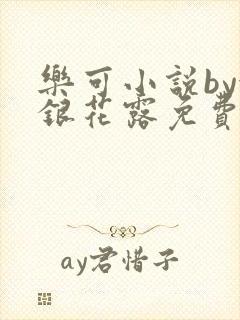 樂可小說by
銀花露免費
ay君惜子